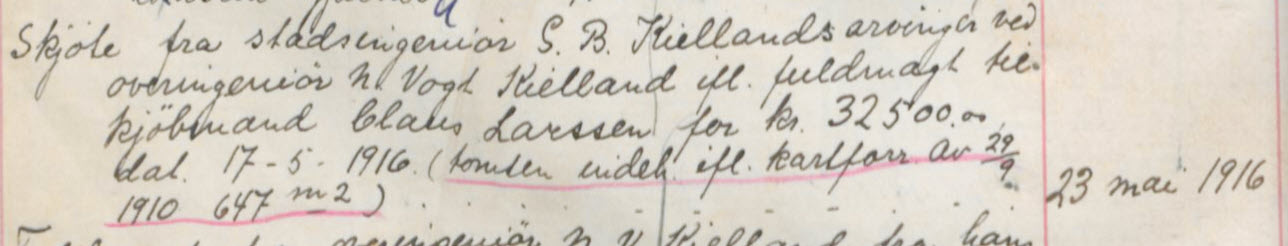 Skjöte fra stadsingeniör S. B. Kiellands arvinger ved
overingeniör N. Vogt Kielland ifl. fuldmagt til
kjöbmand Claus Larssen for kr. 32500.00
dat. 17-5-1916. (tomten indeh. ifl. kartforr av 29/9
1910 647 m2)
23 mai 1916
overingeniör N. V. Kielland fra hans